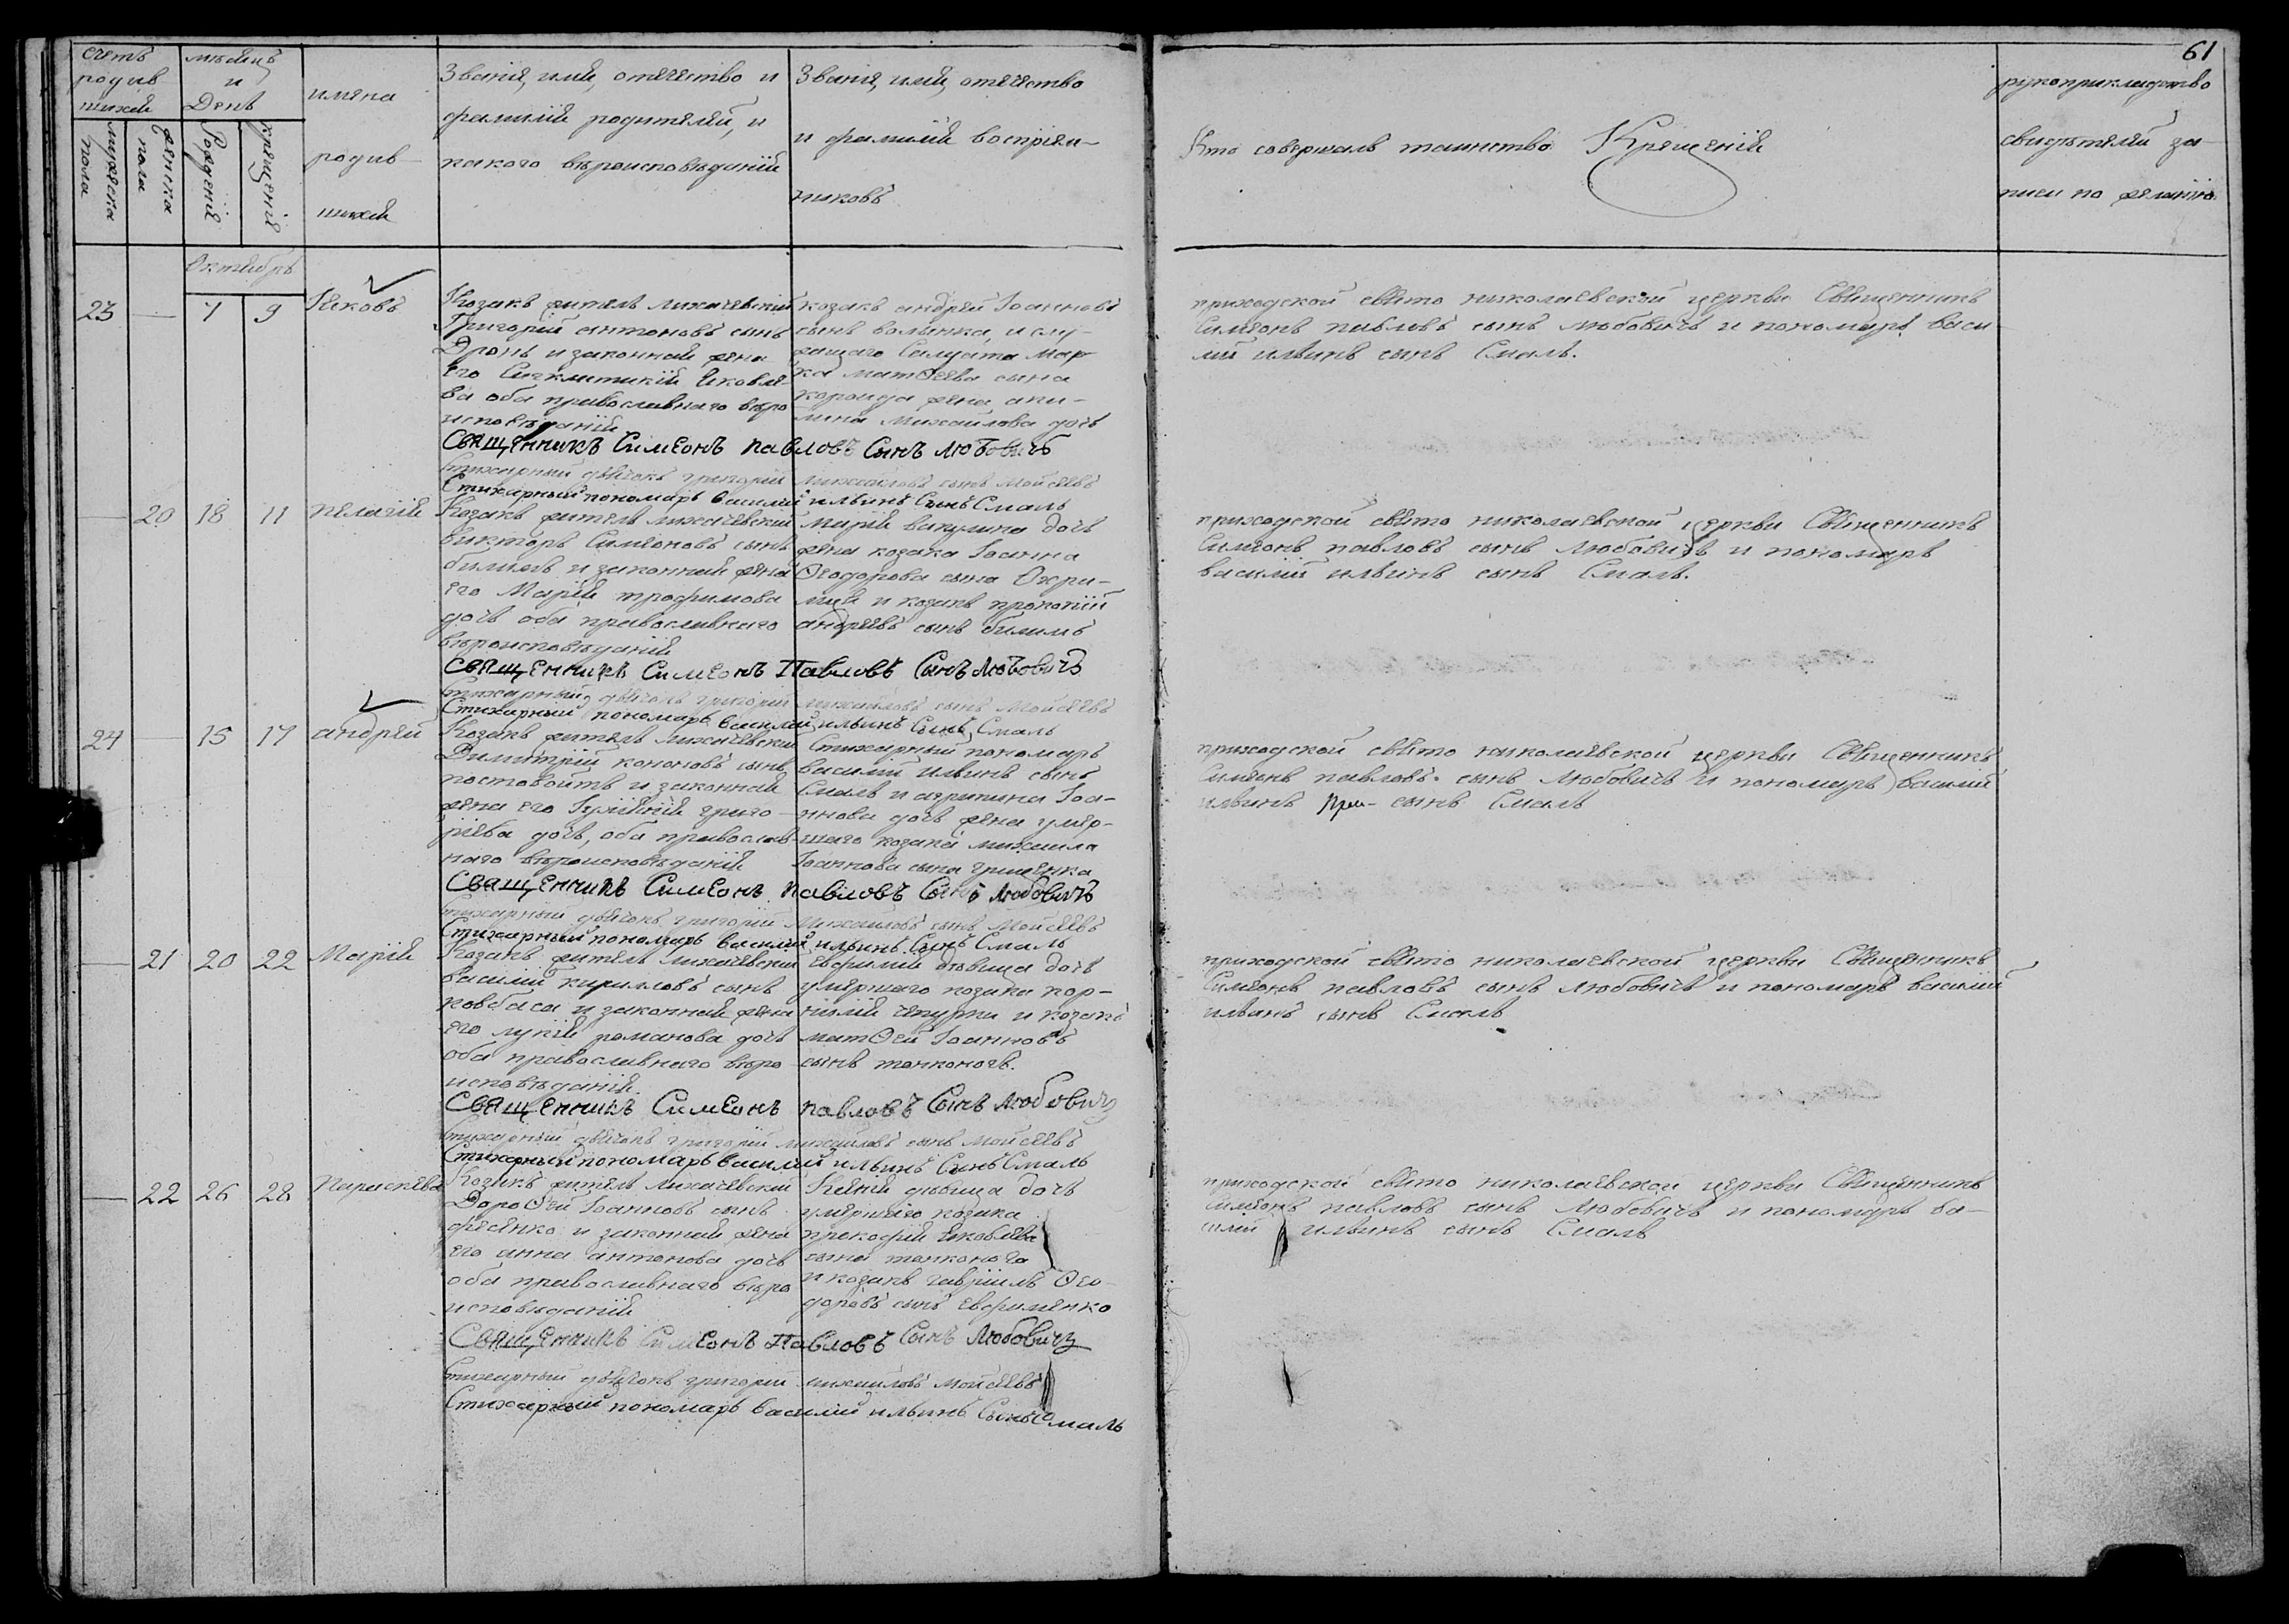 61
счетъ
родив
шихся
мужеска
пола
женска
пола
месяцъ
и
День
Рождения
крещения
имяна
родив-
шихся
Звания, имя, отечество и
фамилия родителей, и
какого вероисповедания
Звания, имя, отечество
и фамилия восприем-
никовъ
Кто совершалъ таинство Крещения
рукоприкладство
свидетелей за-
писи по желанию
Октябрь
23 — 7 9 Яковъ
Козакъ житель лихачевский
Григорий антоновъ сынъ
Дронь и законная жена
его Синклитикия яковле-
ва оба православнаго веро
исповедания
козакъ андрей Иоанновъ
сынъ волынка, и слу-
жащаго Солдата Мар-
ка матѳеева сына
жена аки-
лина Михайлова дочь
приходской свято николаевской церкви Священникъ
Симеонъ павловъ сынъ Любовичъ и пономарь васи
лий ильинъ сынъ Смаль.
Священникъ Симеонъ павловъ Сынъ Любовичъ
Стихарный дьячокъ григорий михайловъ сынъ Мойсеевъ
Стихарный пономарь василий ильинъ Сынъ Смаль
— 20 18 11 пелагия
Козакъ житель лихачевский
викторъ Симеоновъ сынъ
билимъ и законная жена
его Мария трофимова
дочь оба православнаго
вероисповедания
Мария викулина дочь
жена козака Иоанна
Ѳеодорова сына Охри-
и козакъ прокопий
андреевъ сынъ билимъ
приходской свято николаевской церкви Священникъ
Симеонъ павловъ сынъ Любовичъ и пономарь
василий ильинъ сынъ Смаль.
Священникъ Симеонъ Павловъ Сынъ Любовичъ
Стихарный дьячокъ григорий михайловъ сынъ Мойсеевъ
Стихарный пономарь василий ильинъ Сынъ Смаль
24 — 15 17 андрей
Козакъ житель лихачевский
Димитрий кононовъ сынъ
и законная
жена его Иулияния григо-
риева дочь, оба православ-
наго вероисповедания
Стихарный пономарь
василий ильинъ сынъ
Смаль и агрипина Иоа-
ннова дочь жена умер-
шаго козака михаила
Иоаннова сына гриценка
приходской свято николаевской церкви Священникъ
Симеонъ павловъ сынъ Любовичъ и пономарь василий
ильинъ сынъ Смаль
Священникъ Симеонъ павловъ Сынъ Любовичъ
Стихарный дьячокъ григорий Михайловъ сынъ Мойсеевъ
Стихарный пономарь василий ильинъ Сынъ Смаль
— 21 20 22 Мария
Козакъ житель лихачевский
василий кирилловъ сынъ
ковбаса и законная жена
его лукия романова дочь
оба православнаго веро
исповедания
Евфимия девица дочь
умершаго козака кор-
нилия чепурки и козакъ
матѳей Иоанновъ
сынъ тонконогъ.
приходской свято николаевской церкви Священникъ
Симеонъ павловъ сынъ Любовичъ и пономарь василий
ильинъ сынъ Смаль
Священникъ Симеонъ павловъ Сынъ Любовичъ
Стихарный дьячокъ григорий михайловъ сынъ мойсеевъ
Стихарный пономарь василий ильинъ Сынъ Смаль
— 22 26 28 Параскева
Козакъ житель лихачевский
Дороѳей Иоанновъ сынъ
фесенко и законная жена
его анна антонова дочь
оба православнаго веро
исповедания
Ксения девица дочь
умершаго козака
прокофия яковлева
сына тонконога
и козакъ гаврииль Ѳео-
доровъ сынъ евфименко
приходской свято николаевской церкви Священникъ
Симеонъ павловъ сынъ Любовичъ и пономарь ва-
силий ильинъ сынъ Смаль
Священникъ Симеонъ Павловъ Сынъ Любовичъ
Стихарный дьячокъ григорий михайловъ мойсеевъ
Стихарный пономарь василий ильинъ Сынъ Смаль